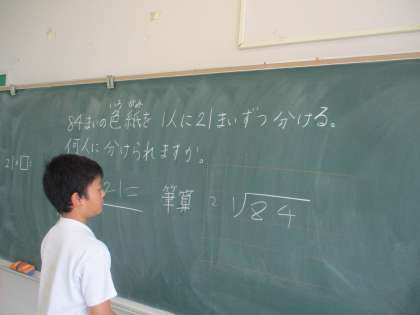 いろ がみ
84まいの色紙を1人に21まいずつ分ける。
何人に分けられますか。
21×□
21=
筆算
2
84